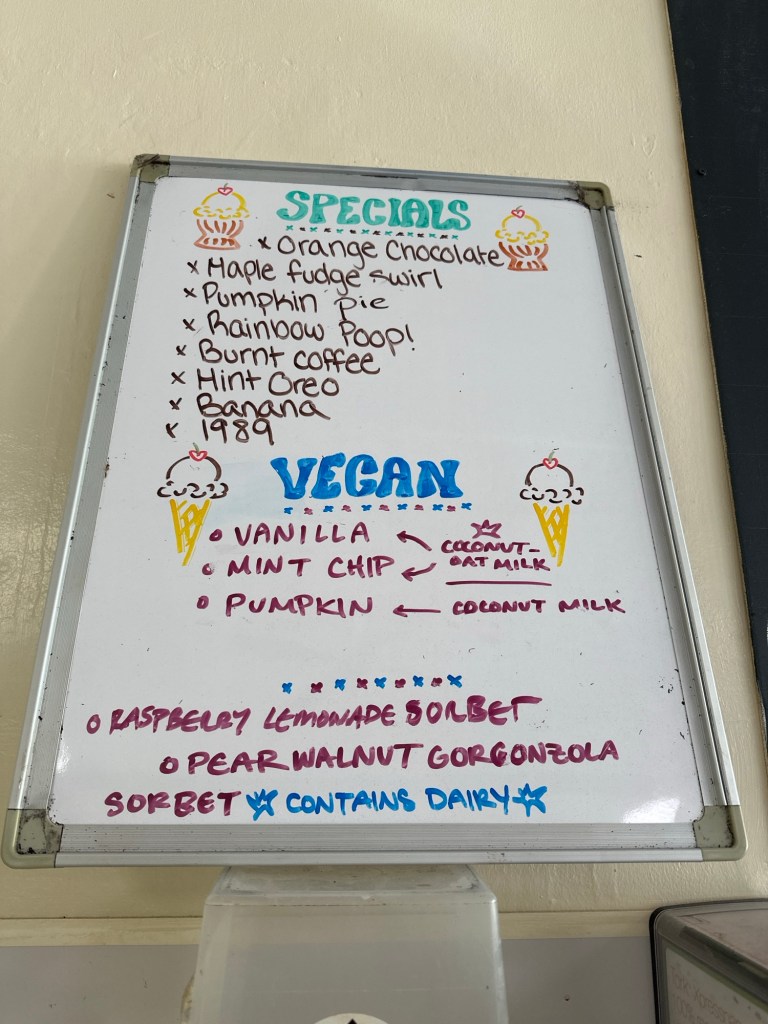 SPECIALS
x Orange Chocolate
x Maple fudge swirl
x Pumpkin pie
x Rainbow Poop!
x Burnt coffee
x Mint Oreo
x Banana
x 1989
VEGAN
VANILLA
COCONUT-
OAT MILK
MINT CHIP
PUMPKIN
COCONUT MILK
RASPBERRY LEMONADE SORBET
PEAR WALNUT GORGONZOLA
SORBET ☆ CONTAINS DAIRY ☆